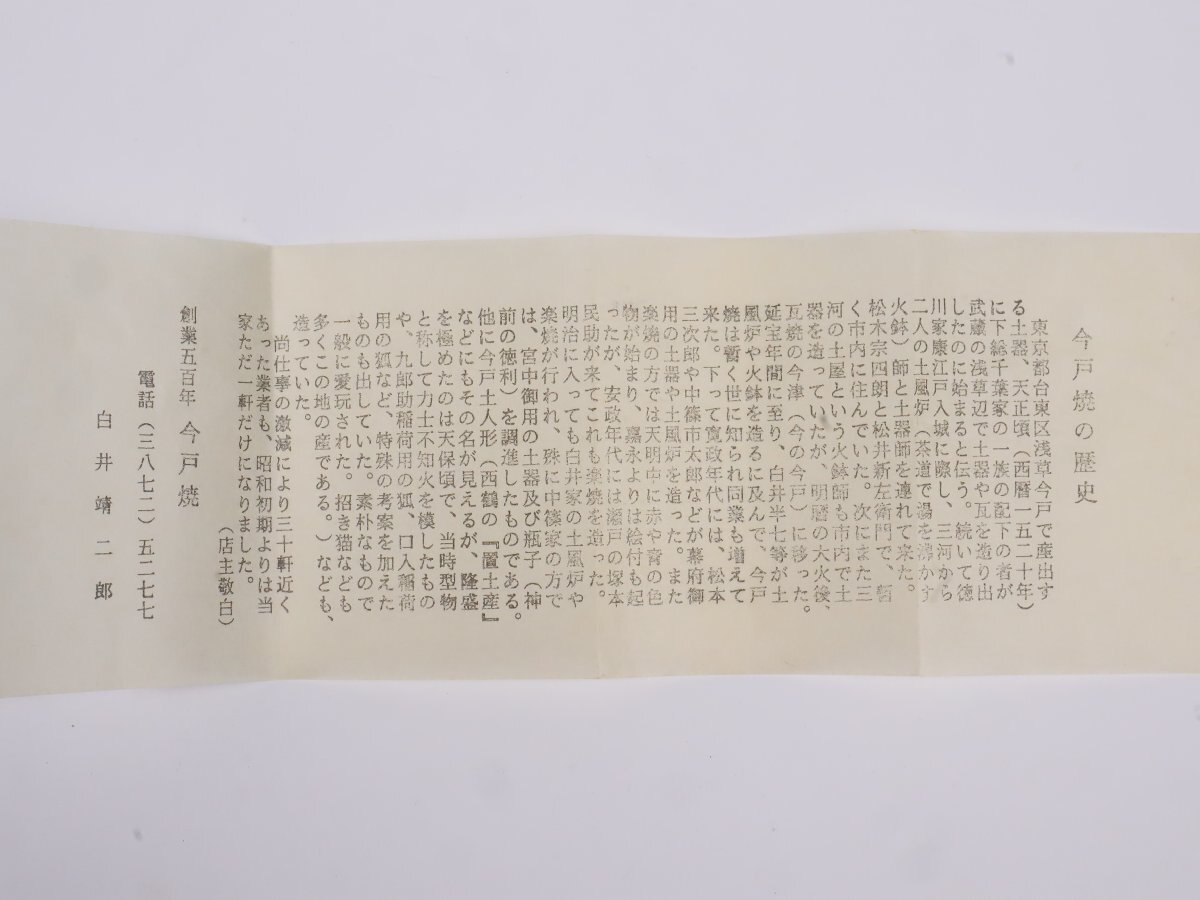 今戸焼の歴史
東京都台東区浅草今戸で産出す
る土器、天正頃（西暦一五二十年）
に下総千葉家の一族の配下の者が
武蔵の浅草辺で土器や瓦を造り出
したのに始まると伝う。続いて徳
川家康江戸入城に際し、三河から
二人の土風炉（茶道で湯を沸かす
火鉢）師と土器師を連れて来た。
松木宗四朗と松井新左衛門で、暫
く市内に住んでいた。次にまた三
河の土屋という火鉢師も市内で土
器を造っていたが、明暦の大火後、
瓦焼の今津（今の今戸）に移った。
延宝年間に至り、白井半七等が土
風炉や火鉢を造るに及んで、今戸
焼は暫く世に知られ同業も増えて
来た。下って寛政年代には、松本
三次郎や中篠市太郎などが幕府御
用の土器や土風炉を造った。また
楽焼の方では天明中に赤や青の色
物が始まり、嘉永よりは絵付も起
ったが、安政年代には瀬戸の塚本
民助が来てこれも楽焼を造った。
明治に入っても白井家の土風炉や
楽焼が行われ、殊に中篠家の方で
は、宮中御用の土器及び瓶子（神
前の徳利）を調進したものである。
他に今戸土人形（西鶴の『置土産』
などにもその名が見えるが、隆盛
を極めたのは天保頃で、当時型物
と称して力士不知火を模したもの
や、九郎助稲荷用の狐、口入稲荷
用の狐など、特殊の考案を加えた
ものも出していた。素朴なもので
一般に愛玩された。招き猫なども
多くこの地の産である。）なども、
造っていた。
尚仕事の激減により三十軒近く
あった業者も、昭和初期よりは当
家ただ一軒だけになりました。
（店主敬白）
創業五百年 今戸焼
電話（三八七二）五二七七
白井靖二郎